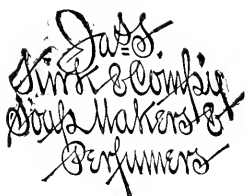 Jas S.
Kirk & Compy
Soap Makers &
Perfumers